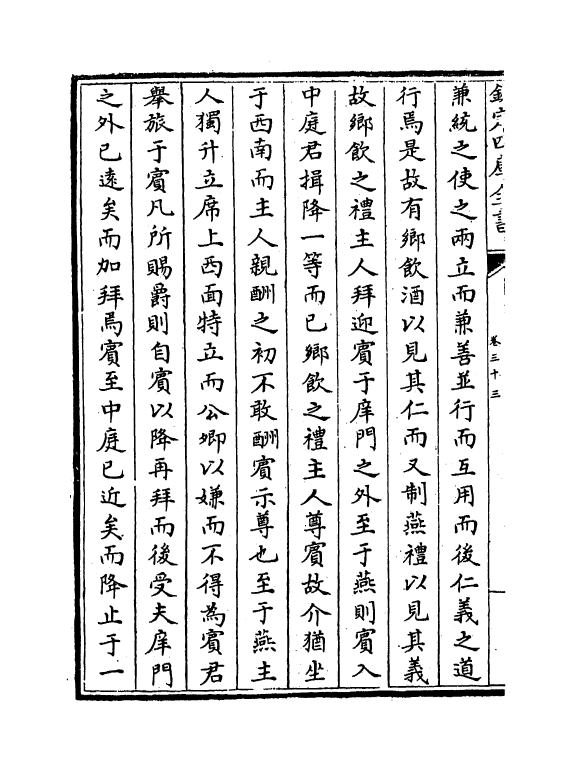 欽定四庫全書
卷三十三
兼統之使之兩立而兼善並行而互用而後仁義之道
行焉是故有鄉飲酒以見其仁而又制燕禮以見其義
故鄉飲之禮主人拜迎賓于庠門之外至于燕則賓入
中庭君揖降一等而已鄉飲之禮主人尊賓故介猶坐
于西南而主人親酬之初不敢酬賓示尊也至于燕主
人獨升立席上西面特立而公卿以嫌而不得為賓君
舉旅于賓凡所賜爵則自賓以降再拜而後受夫庠門
之外已遠矣而加拜焉賓至中庭已近矣而降止于一